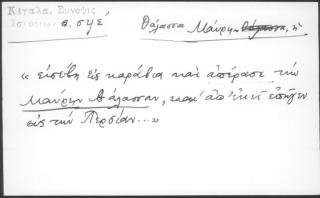 Μεγάλα. Συνοψις
σ. σμέ
Θάλασσα Μαύρη
« εἰσέβη εἰς καράβια καὶ ἀπέρασε τὴν
Μαύρην Θάλασσαν, κ' ἀπ' ἐκεῖ ἐπῆγεν
εἰς τὴν Περσίαν...»